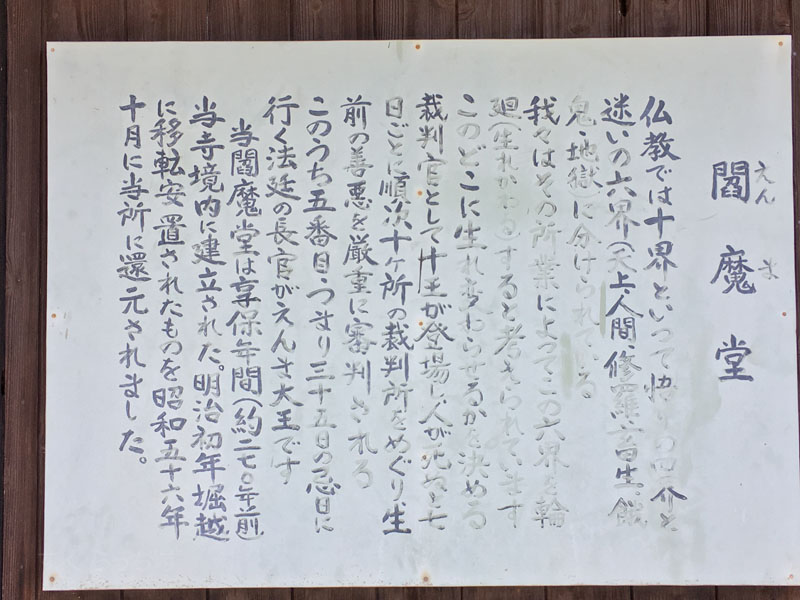 閻魔堂
えんま
仏教では十界といって悟りの四介と
迷いの六界(天上、人間、修羅、畜生、餓
鬼、地獄)に分けられている
我々はその所業によってこの六界を輪
廻(生れかわる)すると考えられています
このどこに生れ変わらせるかを決める
裁判官として十王が登場し人が死ぬと七
日ごとに順次十ヶ所の裁判所をめぐり生
前の善悪を厳重に審判される
このうち五番目つまり三十五日の忌日に
行く法廷の長官がえんま大王です
当閻魔堂は享保年間(約二七〇年前)
当寺境内に建立された。明治初年堀越
に移転安置されたものを昭和五十六年
十月に当所に還元されました。